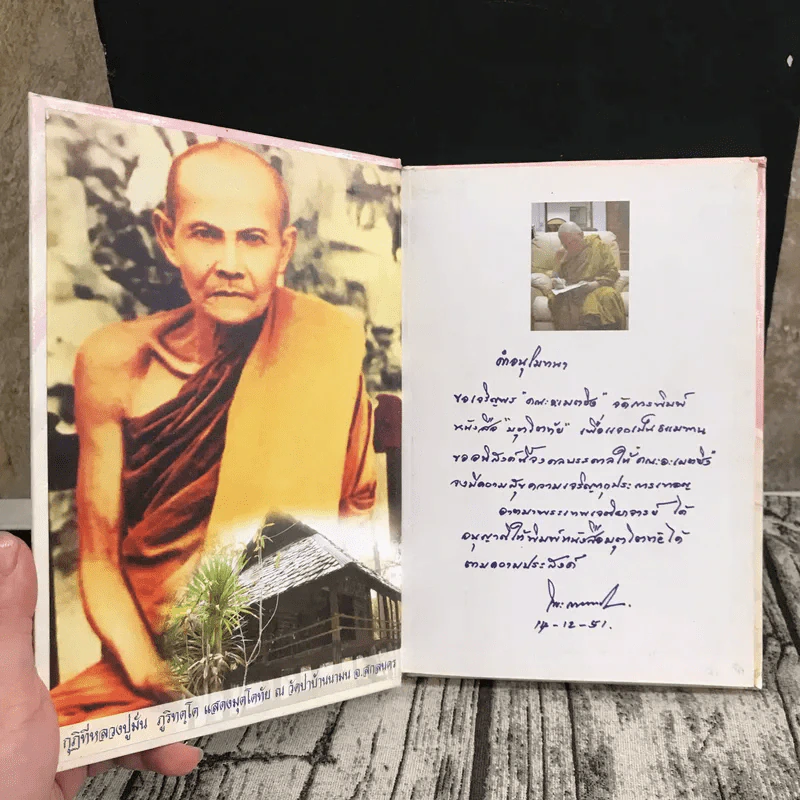 กุฏิที่หลวงปู่มั่น ภูริทตฺโต แสดงมุตโตทัย ณ วัดป่าบ้านนามน จ.สกลนคร
คำอนุโมทนา
ขอเจริญพร " จัดการพิมพ์
หนังสือ "มุตโตทัย" เพื่อแจกเป็นธรรมทาน
ขออานิสงส์นี้จงดลบรรดาลให้
จงมีความสุขความเจริญทุกประการเทอญ
อาตมาพระเทพเจติยาจารย์ ได้
อนุญาตให้พิมพ์หนังสือมุตโตทัยได้
ตามความประสงค์
14-12-51.